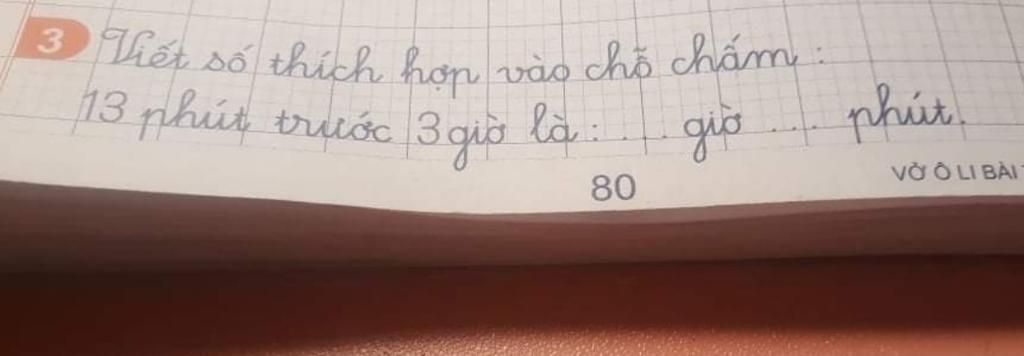 3 Viết số thích hợp vào chỗ chấm:
13 phút trước 3 giờ là: ... giờ ... phút.
80
VỞ Ô LI BÀI